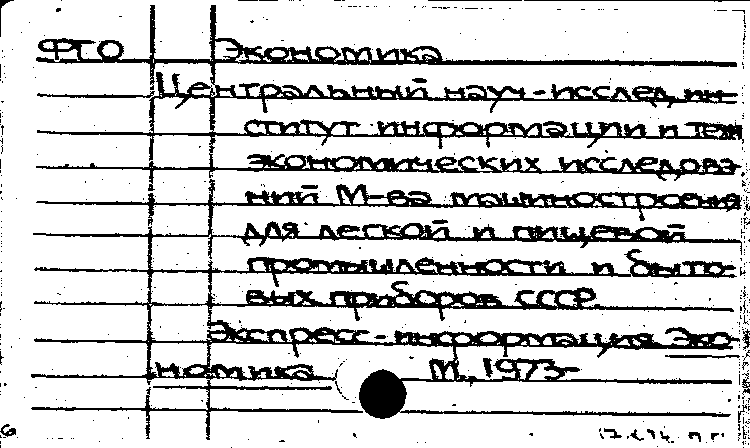 ФГО Экономика
Центральный науч-исслед, ин-
ститут информации и техн
экономических исследова-
ний М-ва машиностроения
для легкой и пищевой
промышленности и быто-
вых приборов СССР.
Экспресс-информация Эко-
номика М., 1973-